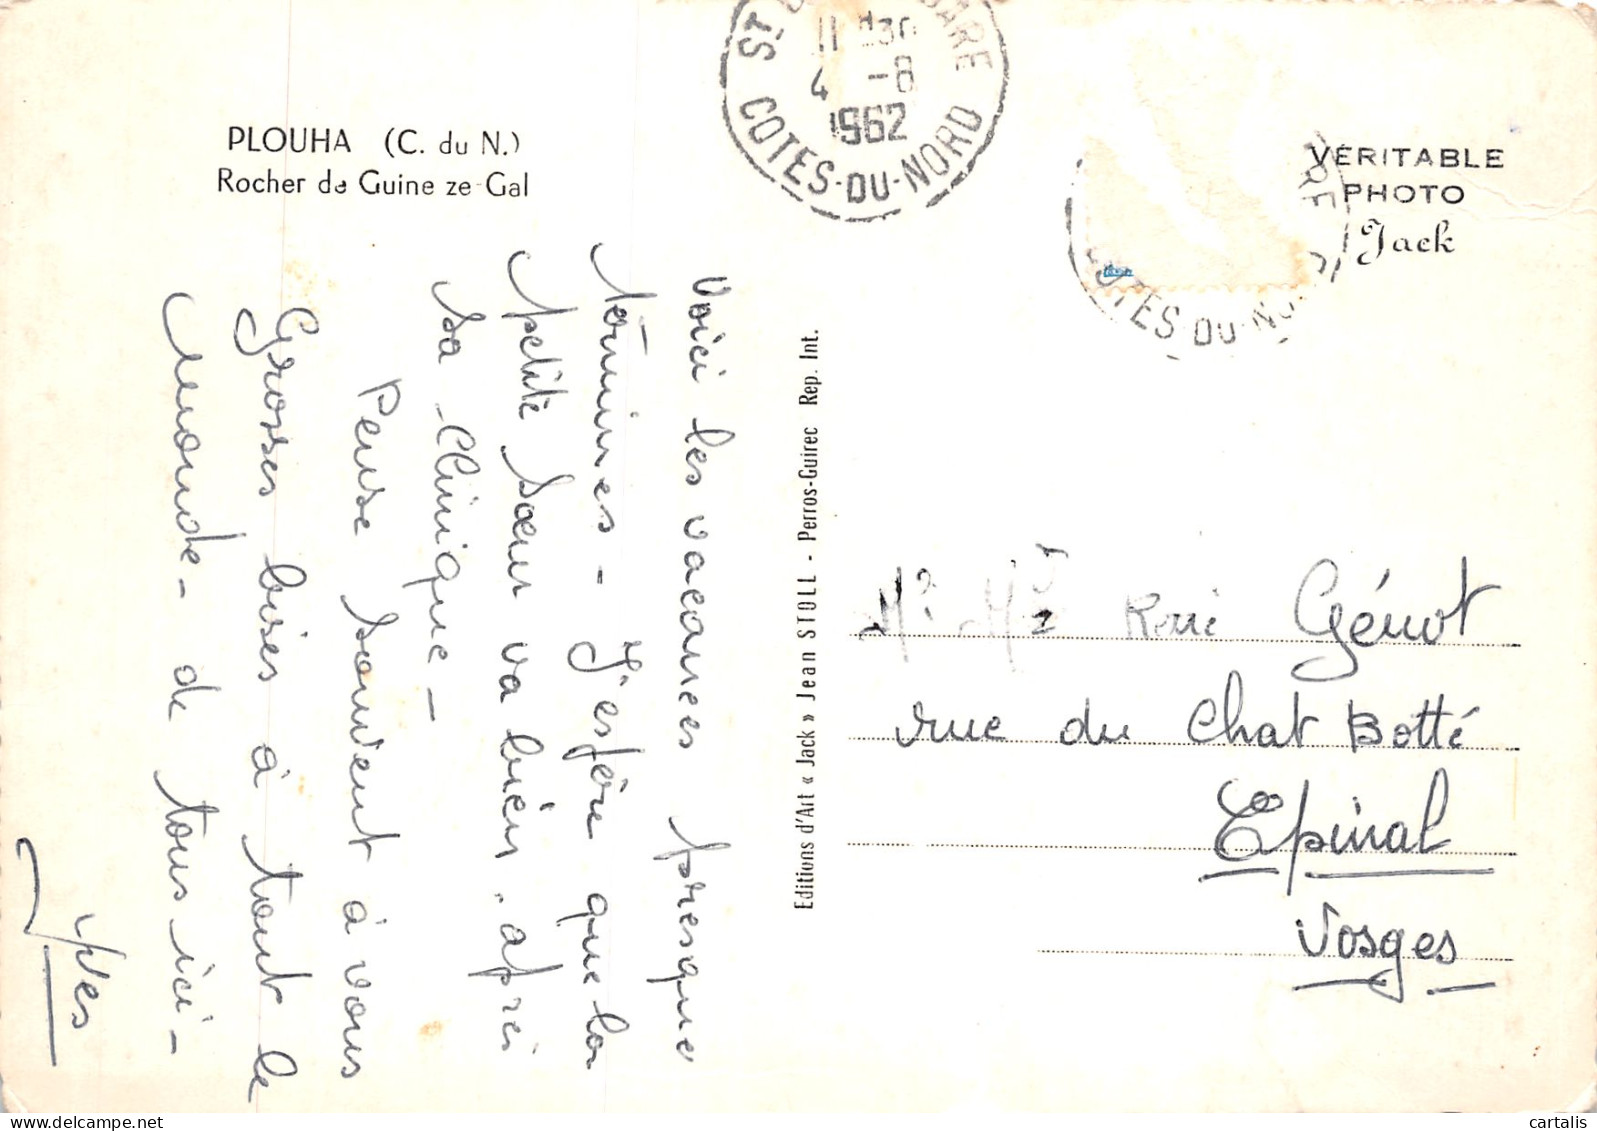 PLOUHA (C. du N.)
Rocher de Guine ze-Gal
11 H30
4 -8
1962
ST
COTES-DU-NORD
VERITABLE
PHOTO
Jack
COTES-DU-NORD
Voici les vacances presque
terminées - J'espère que la
petite sœur va bien, après
sa clinique -
Pense souvent à vous
Grosses bises à tout le
monde - de tous ici -
Editions d'Art « Jack » Jean STOLL - Perros-Guirec Rep. Int.
Mr Mme Génot
rue du Chat Botté
Epinal
Vosges
cartalis